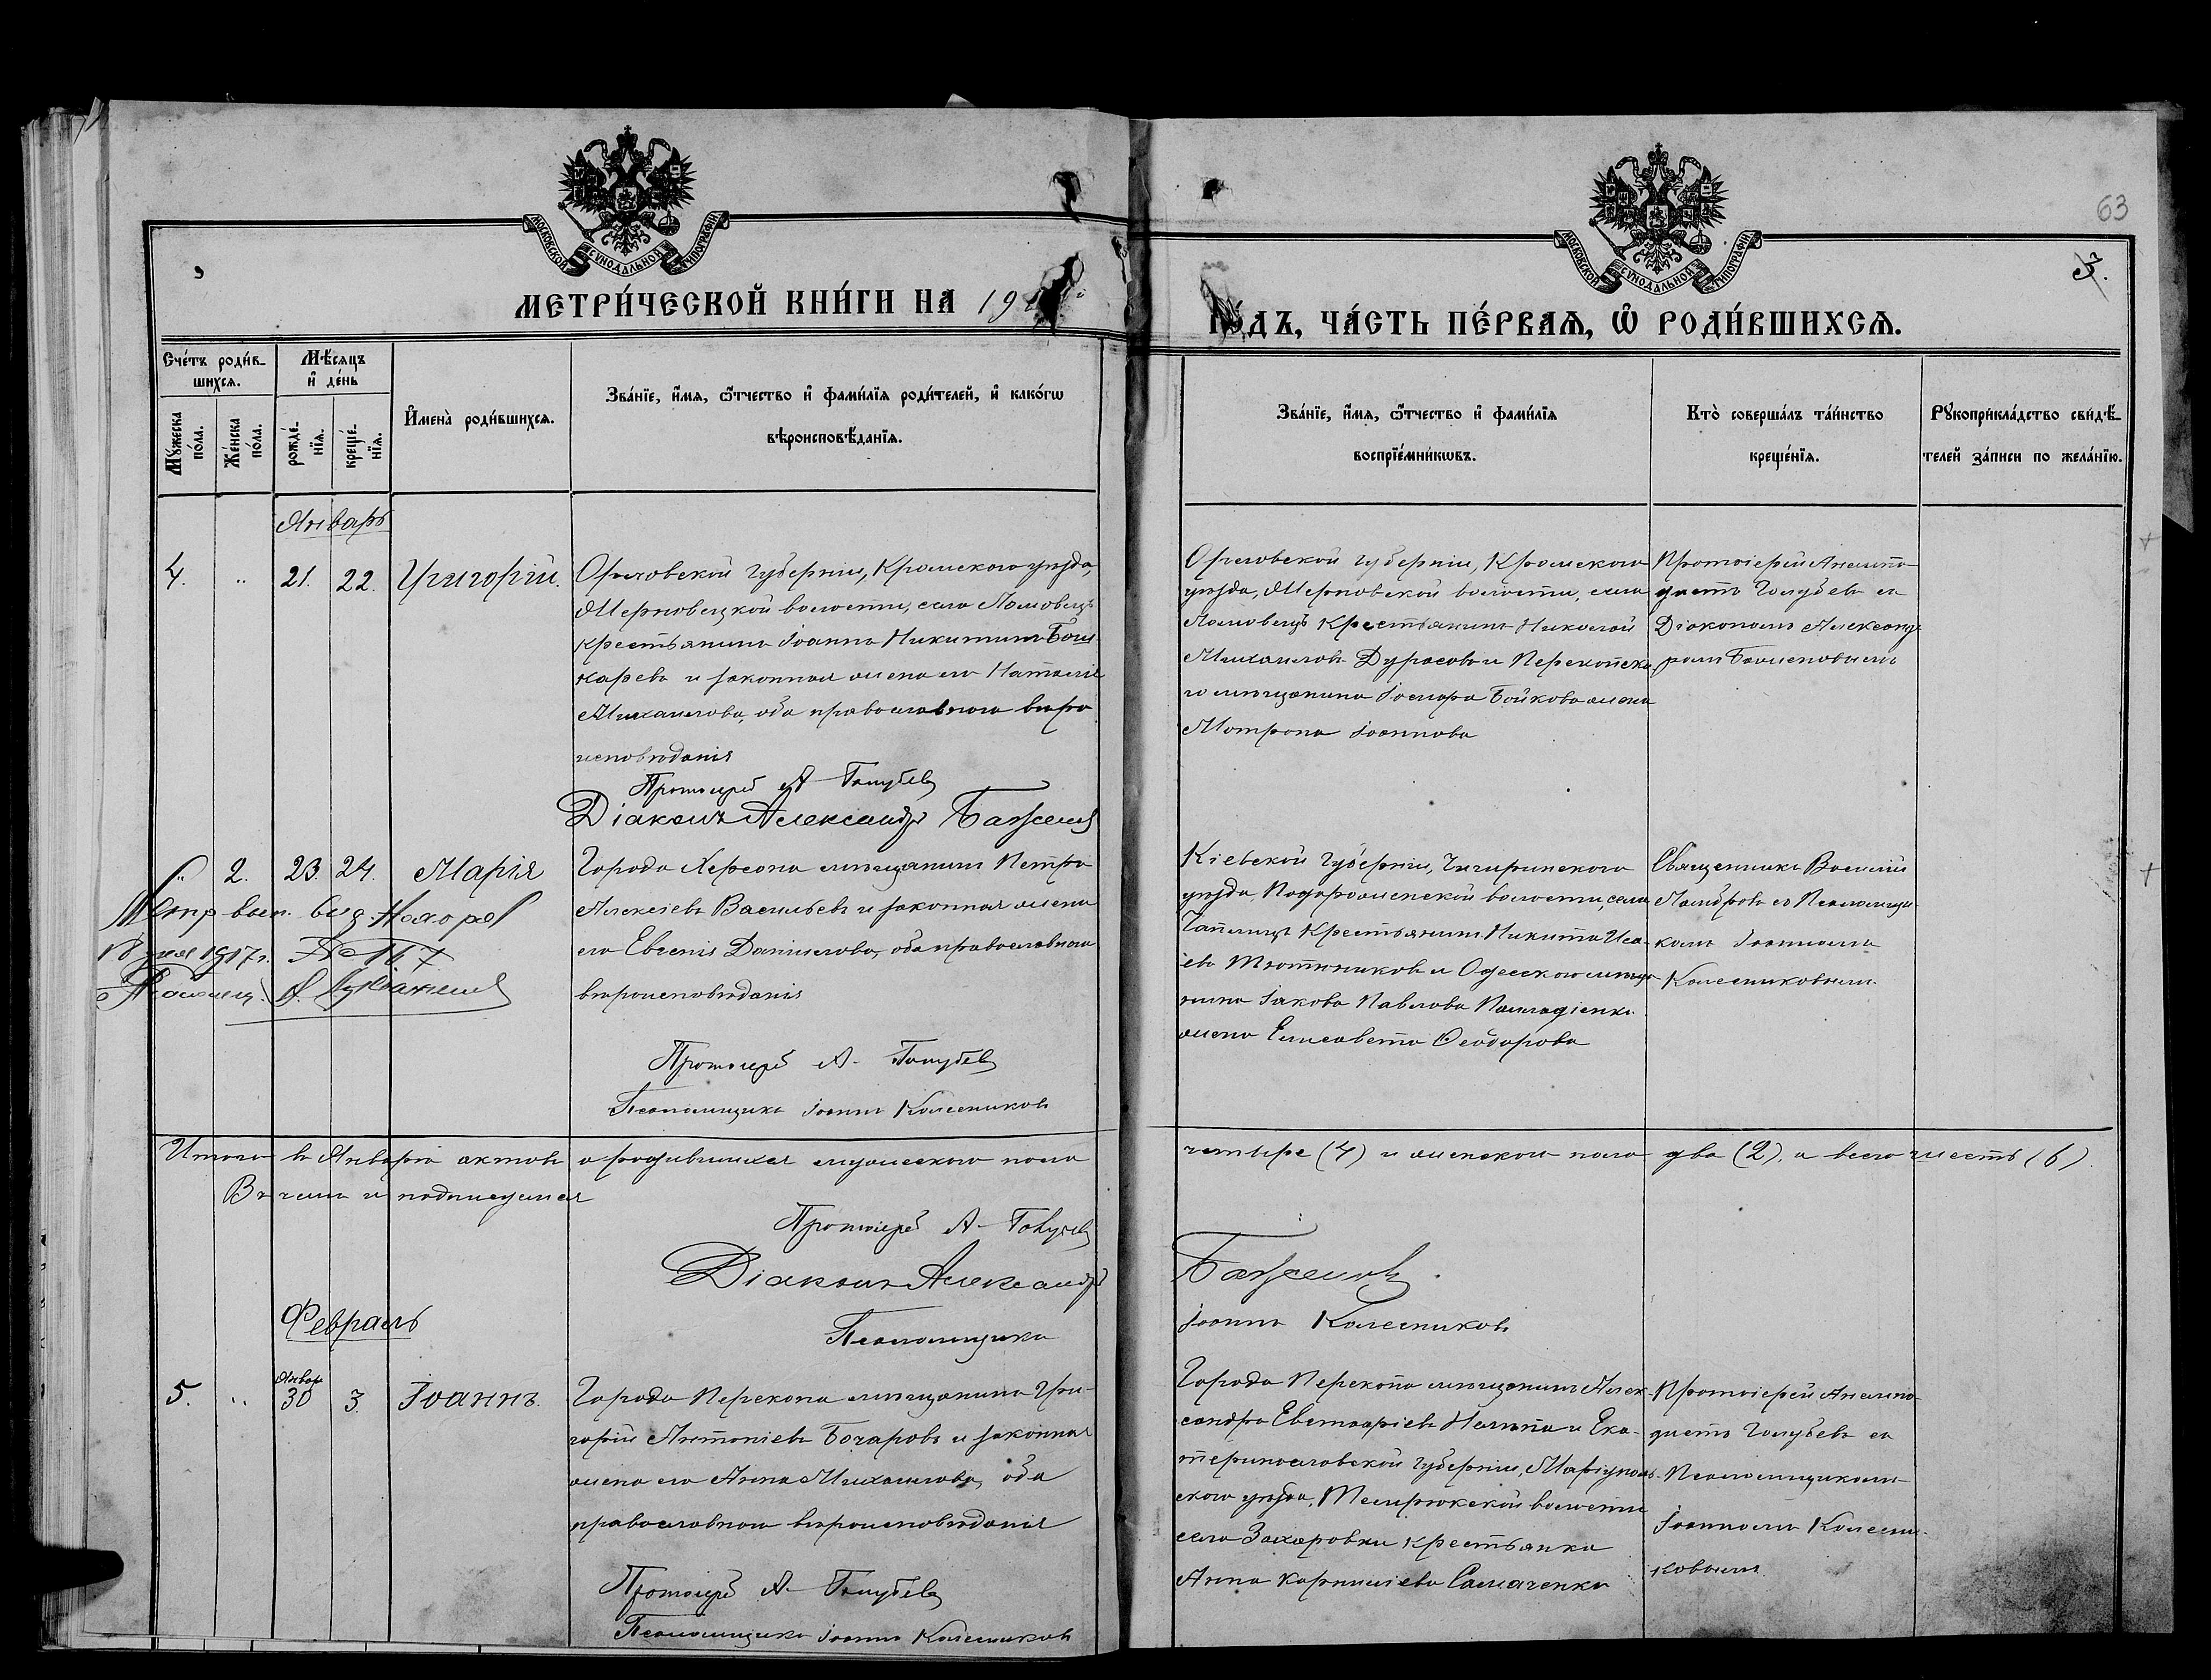 63
МОСКОВСКОЙ СѴНОДАЛЬНОЙ ТИПОГРАФІИ
МОСКОВСКОЙ СѴНОДАЛЬНОЙ ТИПОГРАФІИ
3.
МЕТРИ́ЧЕСКОЙ КНИ́ГИ НА 19
ГО́ДЪ, ЧА́СТЬ ПЕ́РВАѦ, Ѽ РОДИ́ВШИХСѦ.
Сче́тъ роди́в-
шихсѧ.
Мꙋжеска по́ла.
Же́нска по́ла.
Мѣ́сѧцъ
и҆ де́нь
рожде́-
нїѧ.
креще́-
нїѧ.
И҆мена̀ роди́вшихсѧ.
Зва́нїе, и҆́мѧ, ѻ҆́тчество и҆ фами́лїѧ роди́телей, и҆ како́гѡ
вѣроисповѣ́данїѧ.
Зва́нїе, и҆́мѧ, ѻ҆́тчество и҆ фами́лїѧ
воспрїе́мникѡвъ.
Кто̀ соверша́лъ та́инство
креще́нїѧ.
Рꙋкоприкла́дство свидѣ́-
телей за́писи по жела́нїю.
Январь
4. „ 21. 22. Григорій.
Орловской губерніи, Кромского уѣзда,
волости, села Ломовецъ
крестьянинъ Іоаннъ Никитинъ
и законная жена его Наталія
Михаилова, оба православнаго вѣро
исповѣданія
Протоіерей А. Голубевъ
Діаконъ Александръ Баженовъ
Орловской губерніи, Кромского
уѣзда, волости, села
Ломовецъ крестьянинъ Николай
Михаиловъ Дурасовъ и Перекопска
го мѣщанина Бойкова жена
Матрона Іоаннова
Протоіерей
Голубевъ съ
Діакономъ Александ
ромъ Баженовымъ
„ 2. 23. 24. Марія
Города Херсона мѣщанинъ Петръ
Алексіевъ Васильевъ и законная жена
его Евгенія Даніилова, оба православнаго
вѣроисповѣданія
Протоіерей А. Голубевъ
Псаломщикъ Іоаннъ Колесниковъ
1917 г. № 167
Кіевской губерніи, Чигиринского
уѣзда, волости, села
крестьянинъ Никита Иса-
евъ и Одесского мѣща-
нина Іакова Павлова
жена Елисавета Ѳеодорова
Священникъ Василій
съ Псаломщи-
комъ Іоанномъ
Колесниковымъ
Итого въ Январѣ актовъ о родившихся мужескаго пола
четыре (4) и женскаго пола два (2), а всего шесть (6).
Въ чемъ и подписуемся
Протоіерей А. Голубевъ
Діаконъ Александръ
Баженовъ
Псаломщикъ
Іоаннъ Колесниковъ
Февраль
5. „ Январ 30 3. Іоаннъ.
Города Перекопа мѣщанинъ Гри-
горій Антоніевъ Бочаровъ и законная
жена его Анна Михаилова, оба
православнаго вѣроисповѣданія
Протоіерей А. Голубевъ
Псаломщикъ Іоаннъ Колесниковъ
Города Перекопа мѣщанинъ Алек-
сандръ и Ека-
теринославской губерніи, Маріуполь-
ского уѣзда, Темрюкской волости
села Захаровки крестьянка
Анна Корниліева
Протоіерей
Голубевъ съ
Псаломщикомъ
Іоанномъ Колесни-
ковымъ